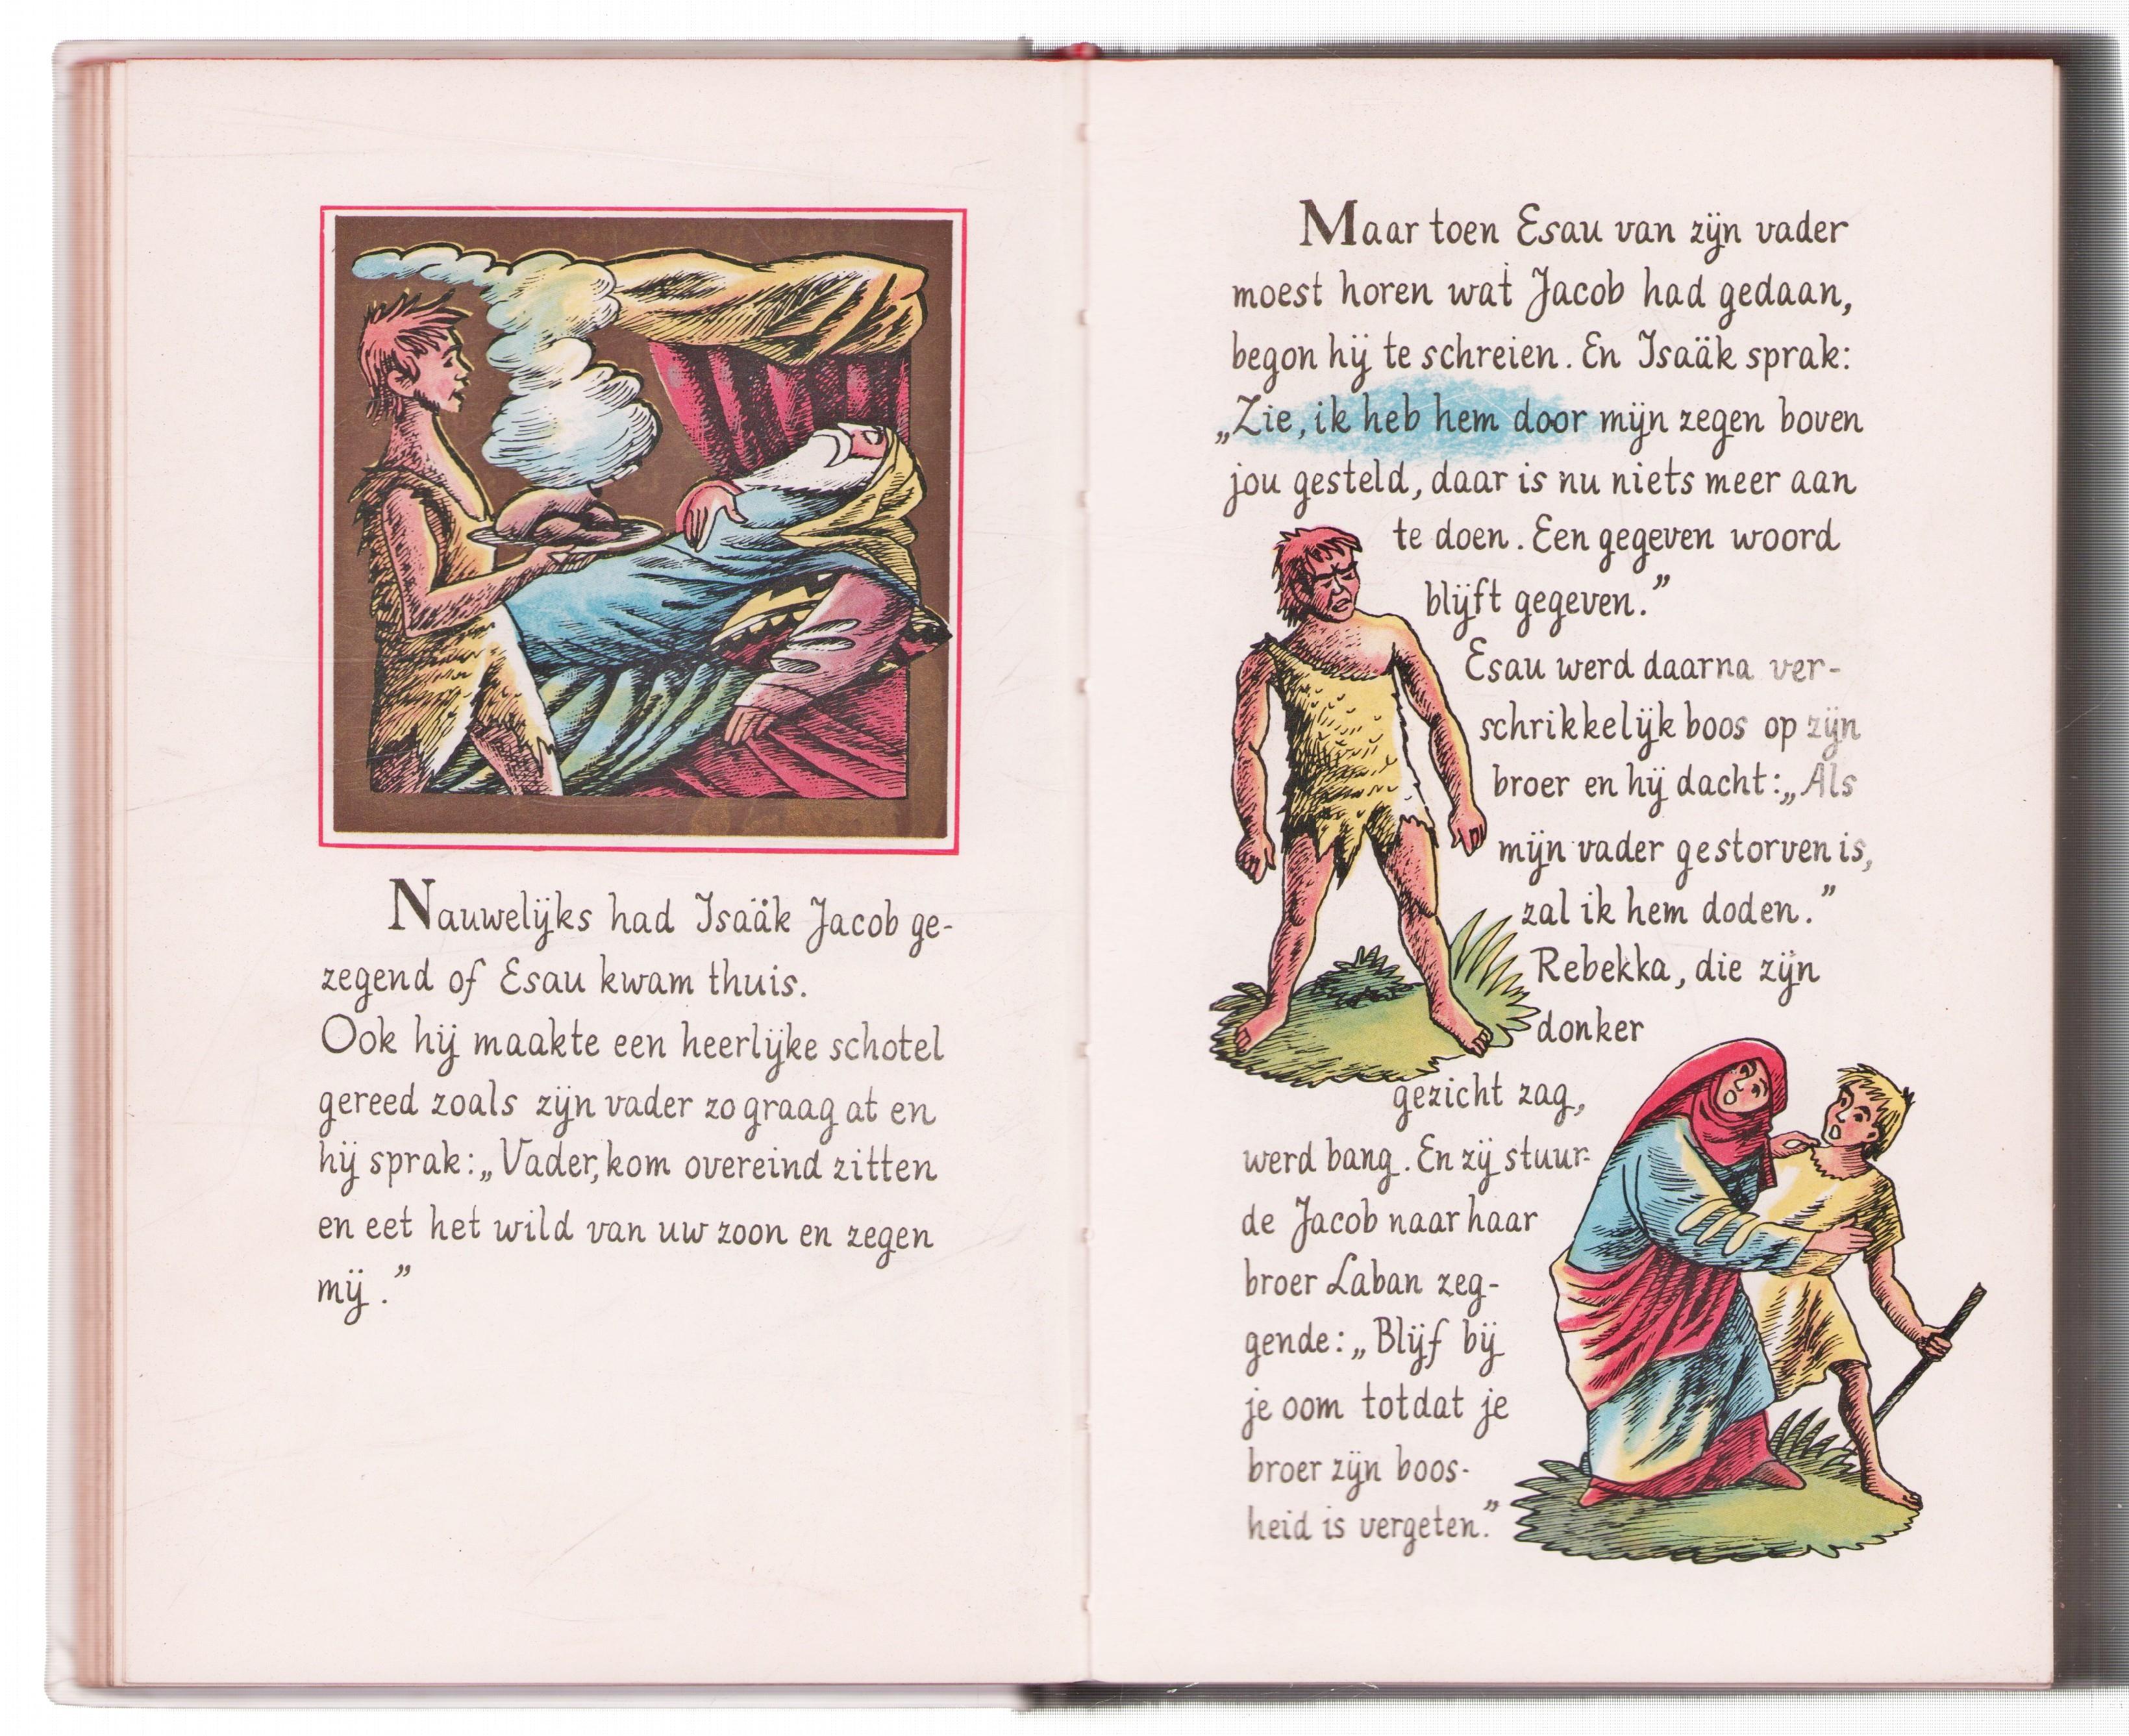 Nauwelijks had Isaäk Jacob ge-
zegend of Esau kwam thuis.
Ook hij maakte een heerlijke schotel
gereed zoals zijn vader zo graag at en
hij sprak: „Vader, kom overeind zitten
en eet het wild van uw zoon en zegen
mij."
Maar toen Esau van zijn vader
moest horen wat Jacob had gedaan,
begon hij te schreien. En Isaäk sprak:
„Zie, ik heb hem door mijn zegen boven
jou gesteld, daar is nu niets meer aan
te doen. Een gegeven woord
blijft gegeven."
Esau werd daarna ver-
schrikkelijk boos op zijn
broer en hij dacht: „Als
mijn vader gestorven is,
zal ik hem doden."
Rebekka, die zijn
donker
gezicht zag,
werd bang. En zij stuur-
de Jacob naar haar
broer Laban zeg-
gende: „Blijf bij
je oom totdat je
broer zijn boos-
heid is vergeten."